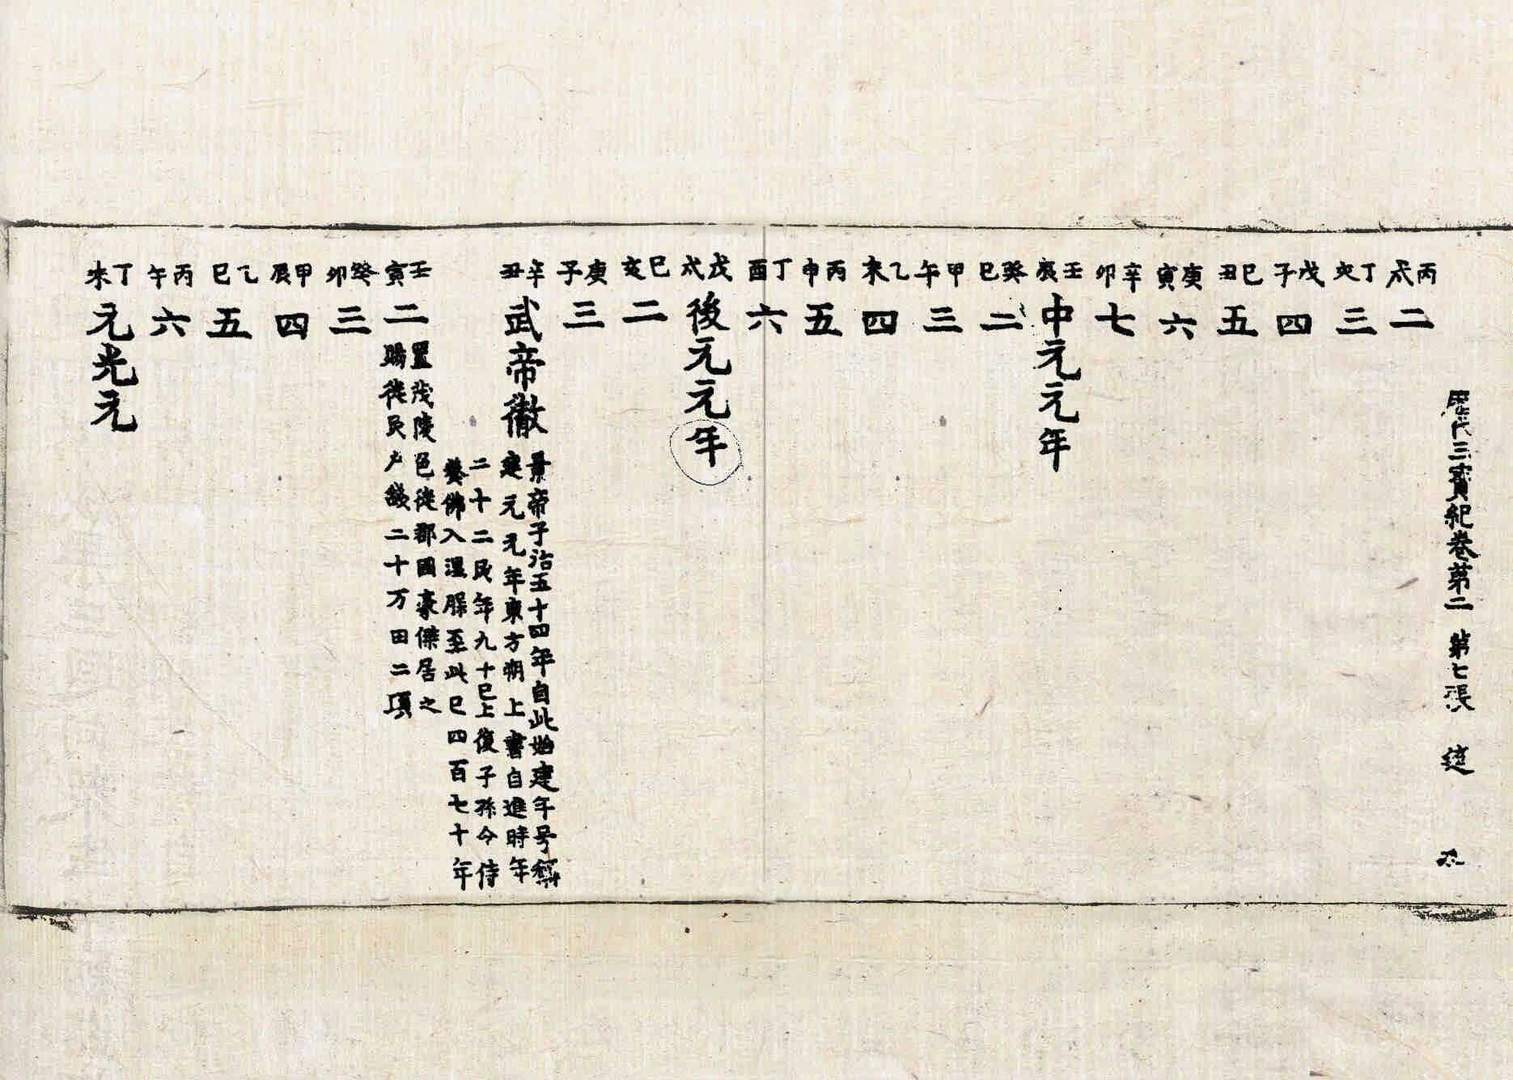 歷代三寶紀卷第二 第七張 筵
丙戌 二
丁亥 三
戊子 四
己丑 五
庚寅 六
辛卯 七
壬辰 中元元年
癸巳 二
甲午 三
乙未 四
丙申 五
丁酉 六
戊戌 後元元年
己亥 二
庚子 三
辛丑 武帝徹
景帝子治五十四年自此始建年号稱
建元元年東方朔上書自進時年
二十二民年九十已上復子孫今侍
養佛入涅槃至此已四百七十年
壬寅 二
置茂陵邑徙郡國豪傑居之
賜徙民户錢二十万田二頃
癸卯 三
甲辰 四
乙巳 五
丙午 六
丁未 元光元